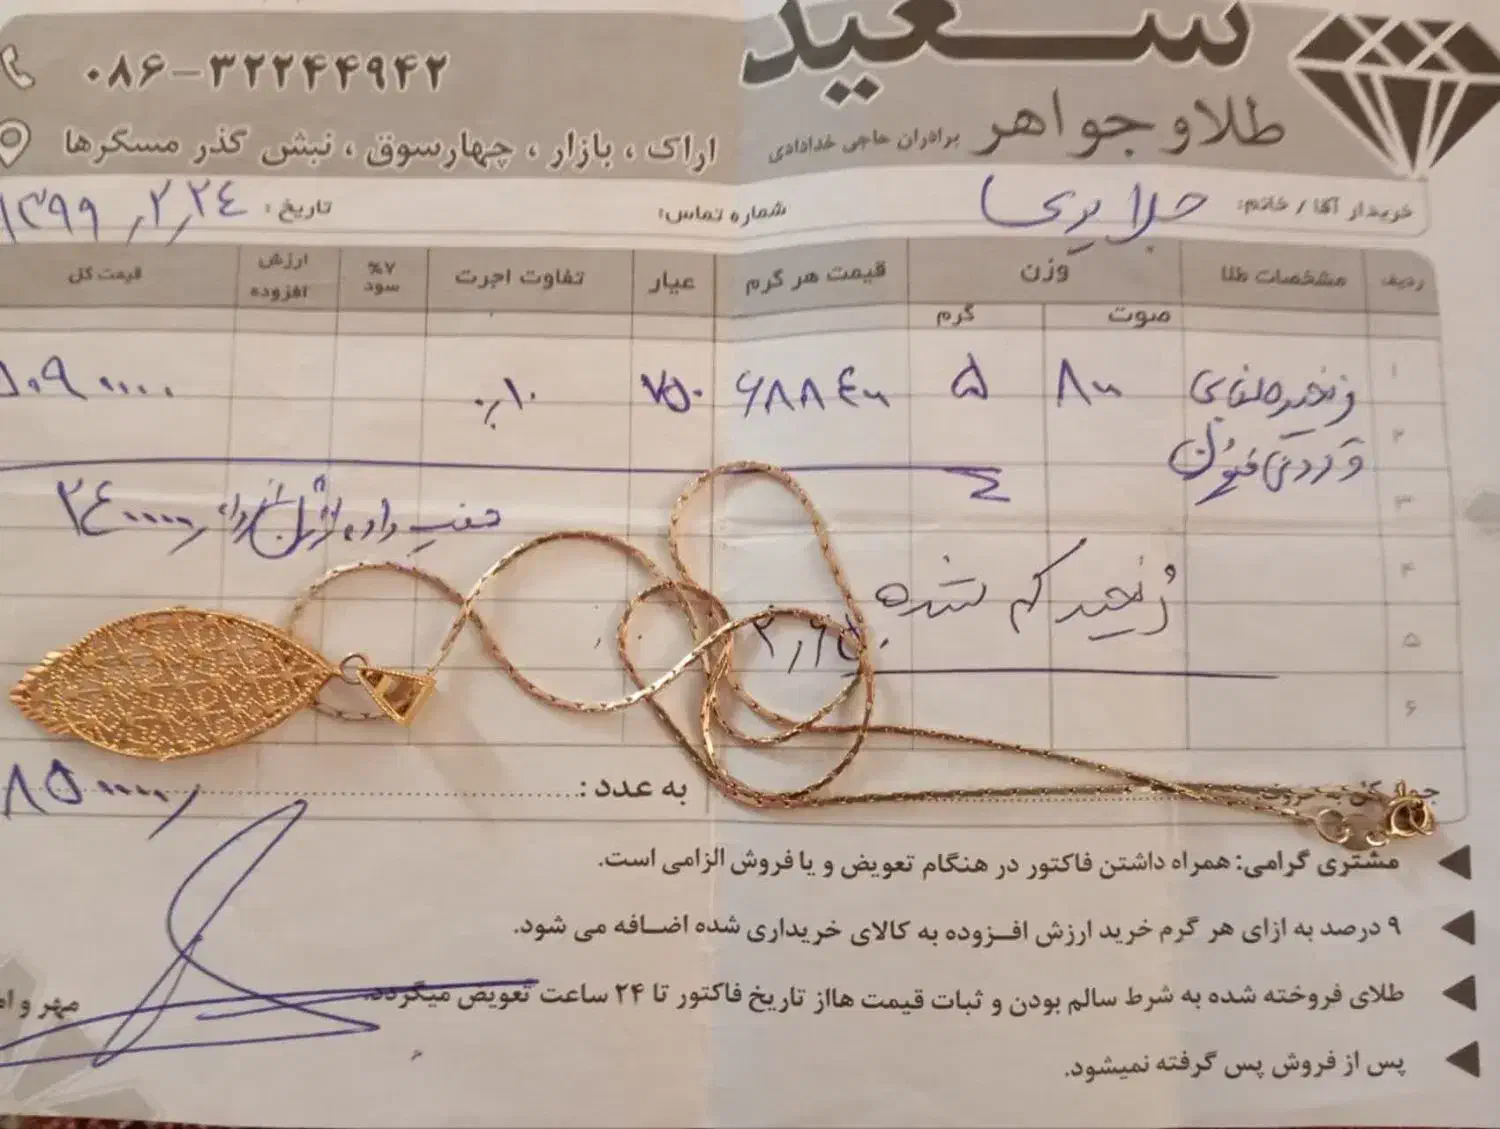 سعید
طلا و جواهر برادران حاجی خدادادی
۰۸۶-۳۲۲۴۴۹۴۲
اراک ، بازار ، چهارسوق ، نبش گذر مسگرها
خریدار آقا / خانم:
شماره تماس:
تاریخ: ۱۳۹۹/۲/۲۴
ردیف مشخصات طلا وزن قیمت هر گرم عیار تفاوت اجرت ۷% سود ارزش افزوده قیمت کل
صوت گرم
۱ ۵ ۷۵۰ ٪۱۰
۲
۳
۴
زنجیر کم شده
۵
۶
به عدد:
مشتری گرامی: همراه داشتن فاکتور در هنگام تعویض و یا فروش الزامی است.
۹ درصد به ازای هر گرم خرید ارزش افزوده به کالای خریداری شده اضافه می شود.
طلای فروخته شده به شرط سالم بودن و ثبات قیمت هااز تاریخ فاکتور تا ۲۴ ساعت تعویض میگردد.
مهر و
پس از فروش پس گرفته نمیشود.